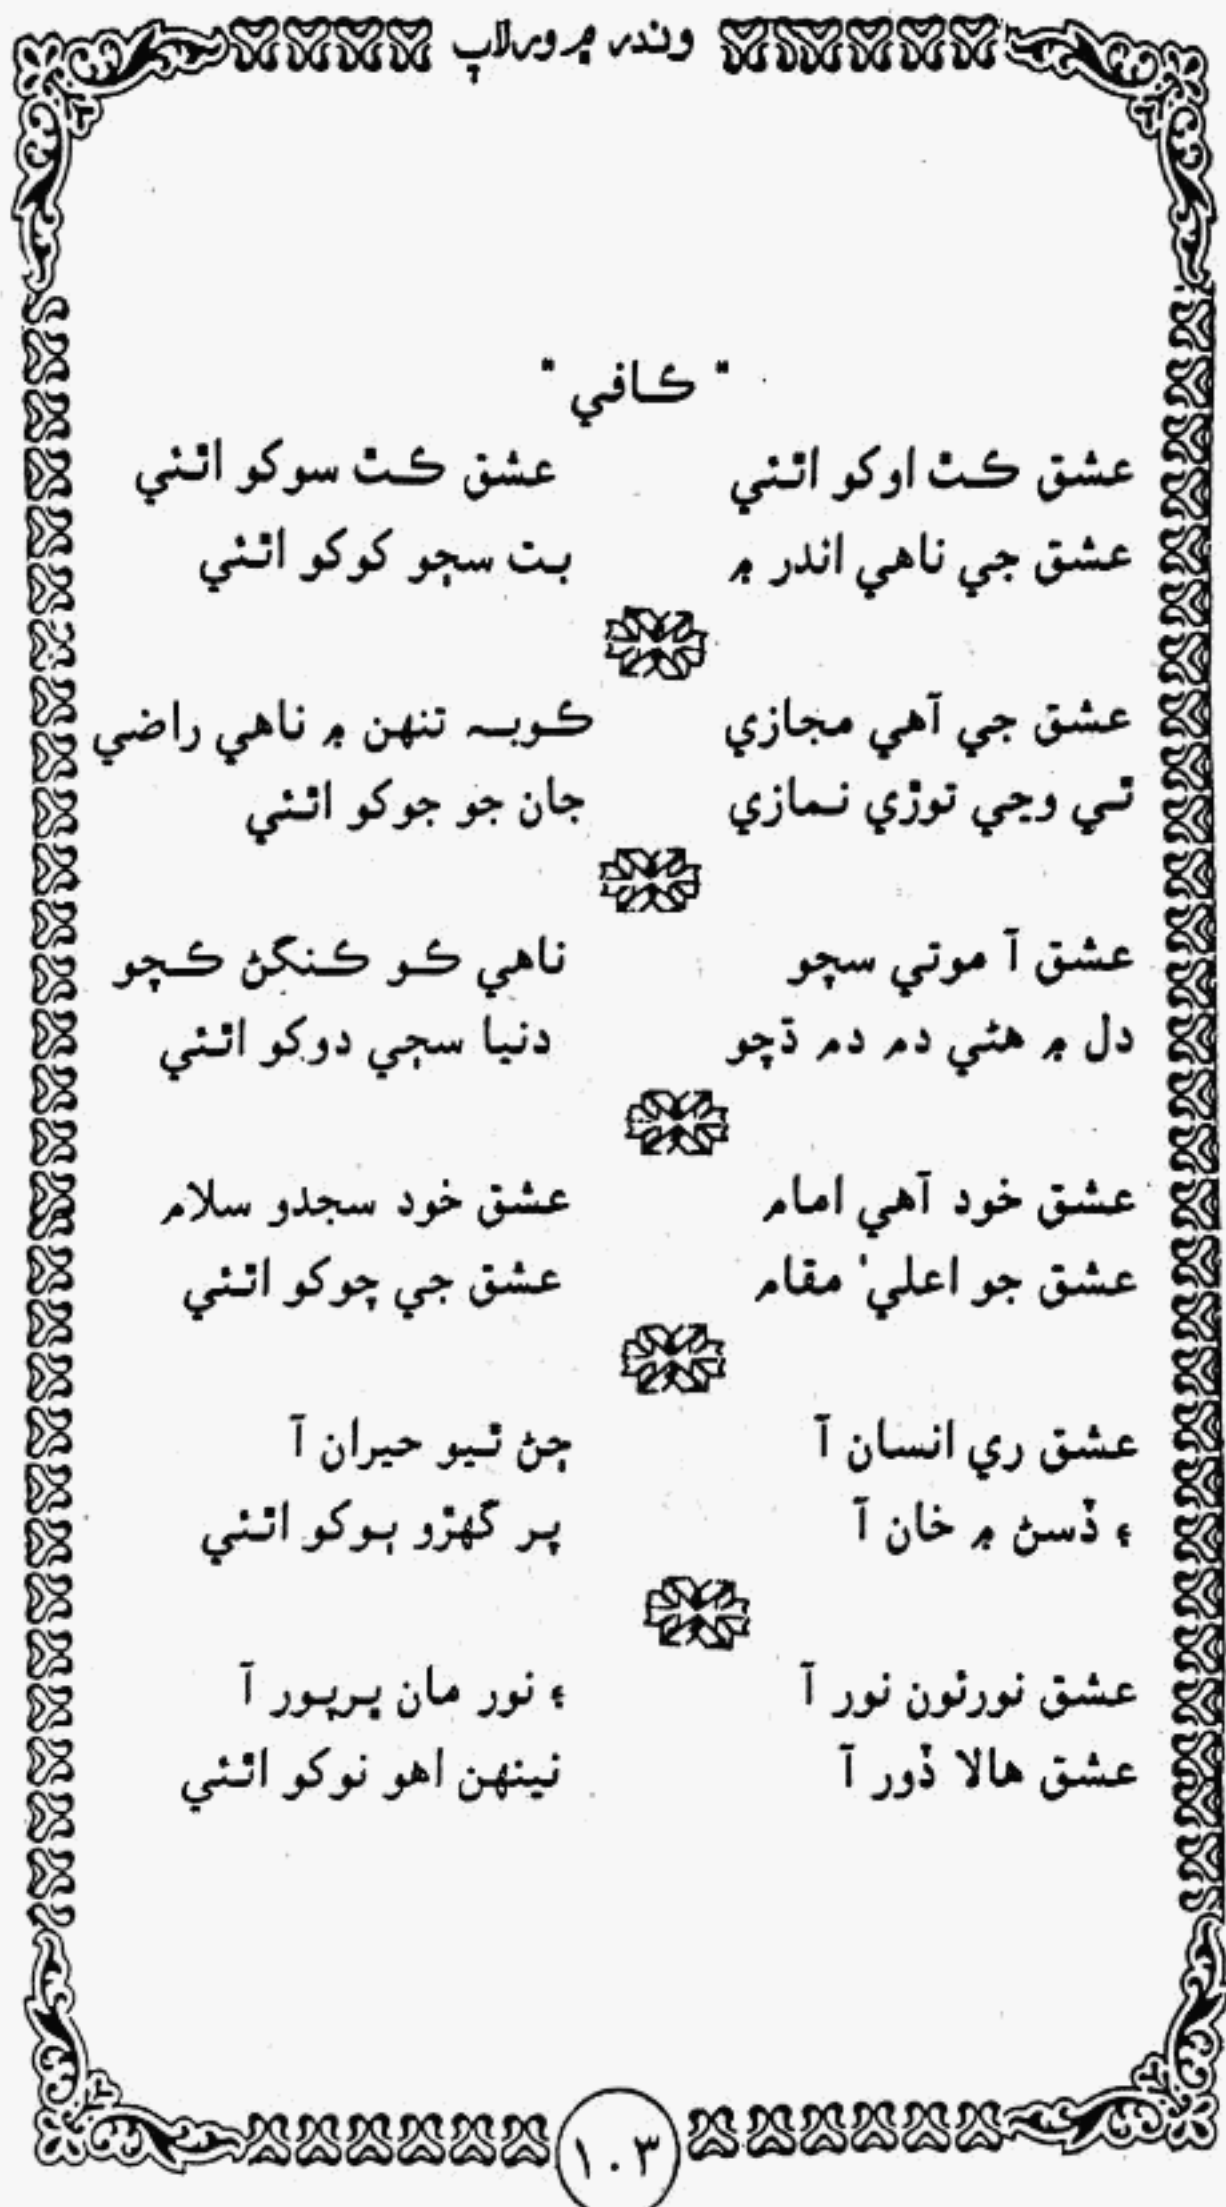 وندر ۾ ورلاپ
" ڪافي "
عشق ڪٿ اوکو اٿئي عشق ڪٿ سوکو اٿئي
عشق جي ناهي اندر ۾ بت سڄو کوکو اٿئي
عشق جي آهي مجازي ڪوبہ تنهن ۾ ناهي راضي
ٿي وڃي توڙي نمازي جان جو جوکو اٿئي
عشق آ موتي سچو ناهي ڪو ڪنگڻ ڪچو
دل ۾ هڻي دم دم ڌچو دنيا سڄي دوکو اٿئي
عشق خود آهي امام عشق خود سجدو سلام
عشق جو اعليٰ مقام عشق جي چوکو اٿئي
عشق ري انسان آ ڄڻ ٿيو حيران آ
۽ ڏسڻ ۾ خان آ پر گهڙو ٻوکو اٿئي
عشق نورئون نور آ ۽ نور مان ڀرپور آ
عشق هالا ڏور آ نينهن اهو نوکو اٿئي
١٠٣